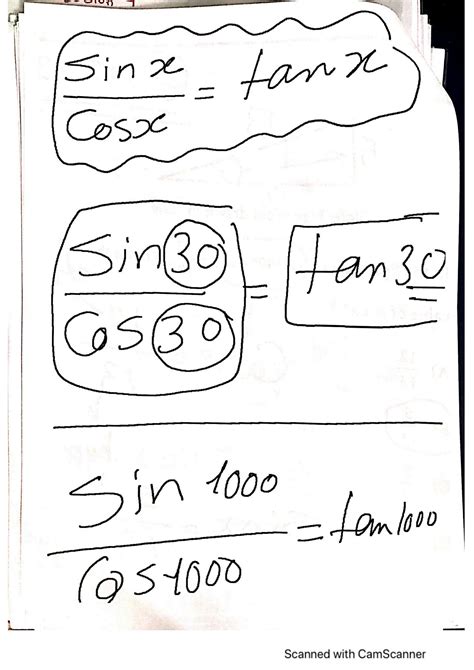 sin x
cos x
= tan x
sin 30
cos 30
= tan 30
sin 1000
cos 1000
= tan 1000
Scanned with CamScanner